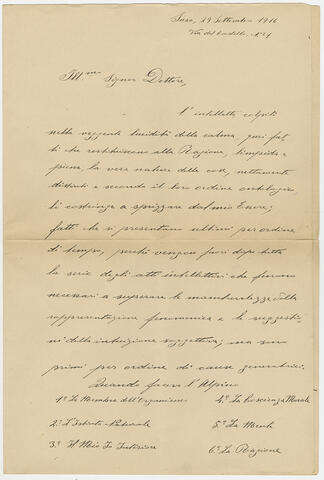 Susa, 29 Settembre 1916
Via del Castello, N. 1
Ill.mo Signor Dottore,
L'intelletto colpito
nella veggente lucidità della calma, quei fat
ti che restituiscono alla Ragione, limpida e
piena, la vera natura delle cose, nettamente
distinti e secondo il loro ordine ontologico,
li costringe a sprizzare dal mio Cuore;
fatti che si presentano ultimi per ordine
di tempo, perché vengon fuori dopo tutta
la serie degli atti intellettivi che furono
necessari a superare la manchevolezza della
rappresentazione fenomenica e le suggestio
ni della intuizione soggettiva; ma sono
primi per ordine di cause generatrici.
Quando feci l'Alpino
1° Le Membra dell'Organismo
4° La Coscienza Morale
2° L'Istinto Naturale
5° La Mente
3° Il Mio Io Interiore
6° La Ragione